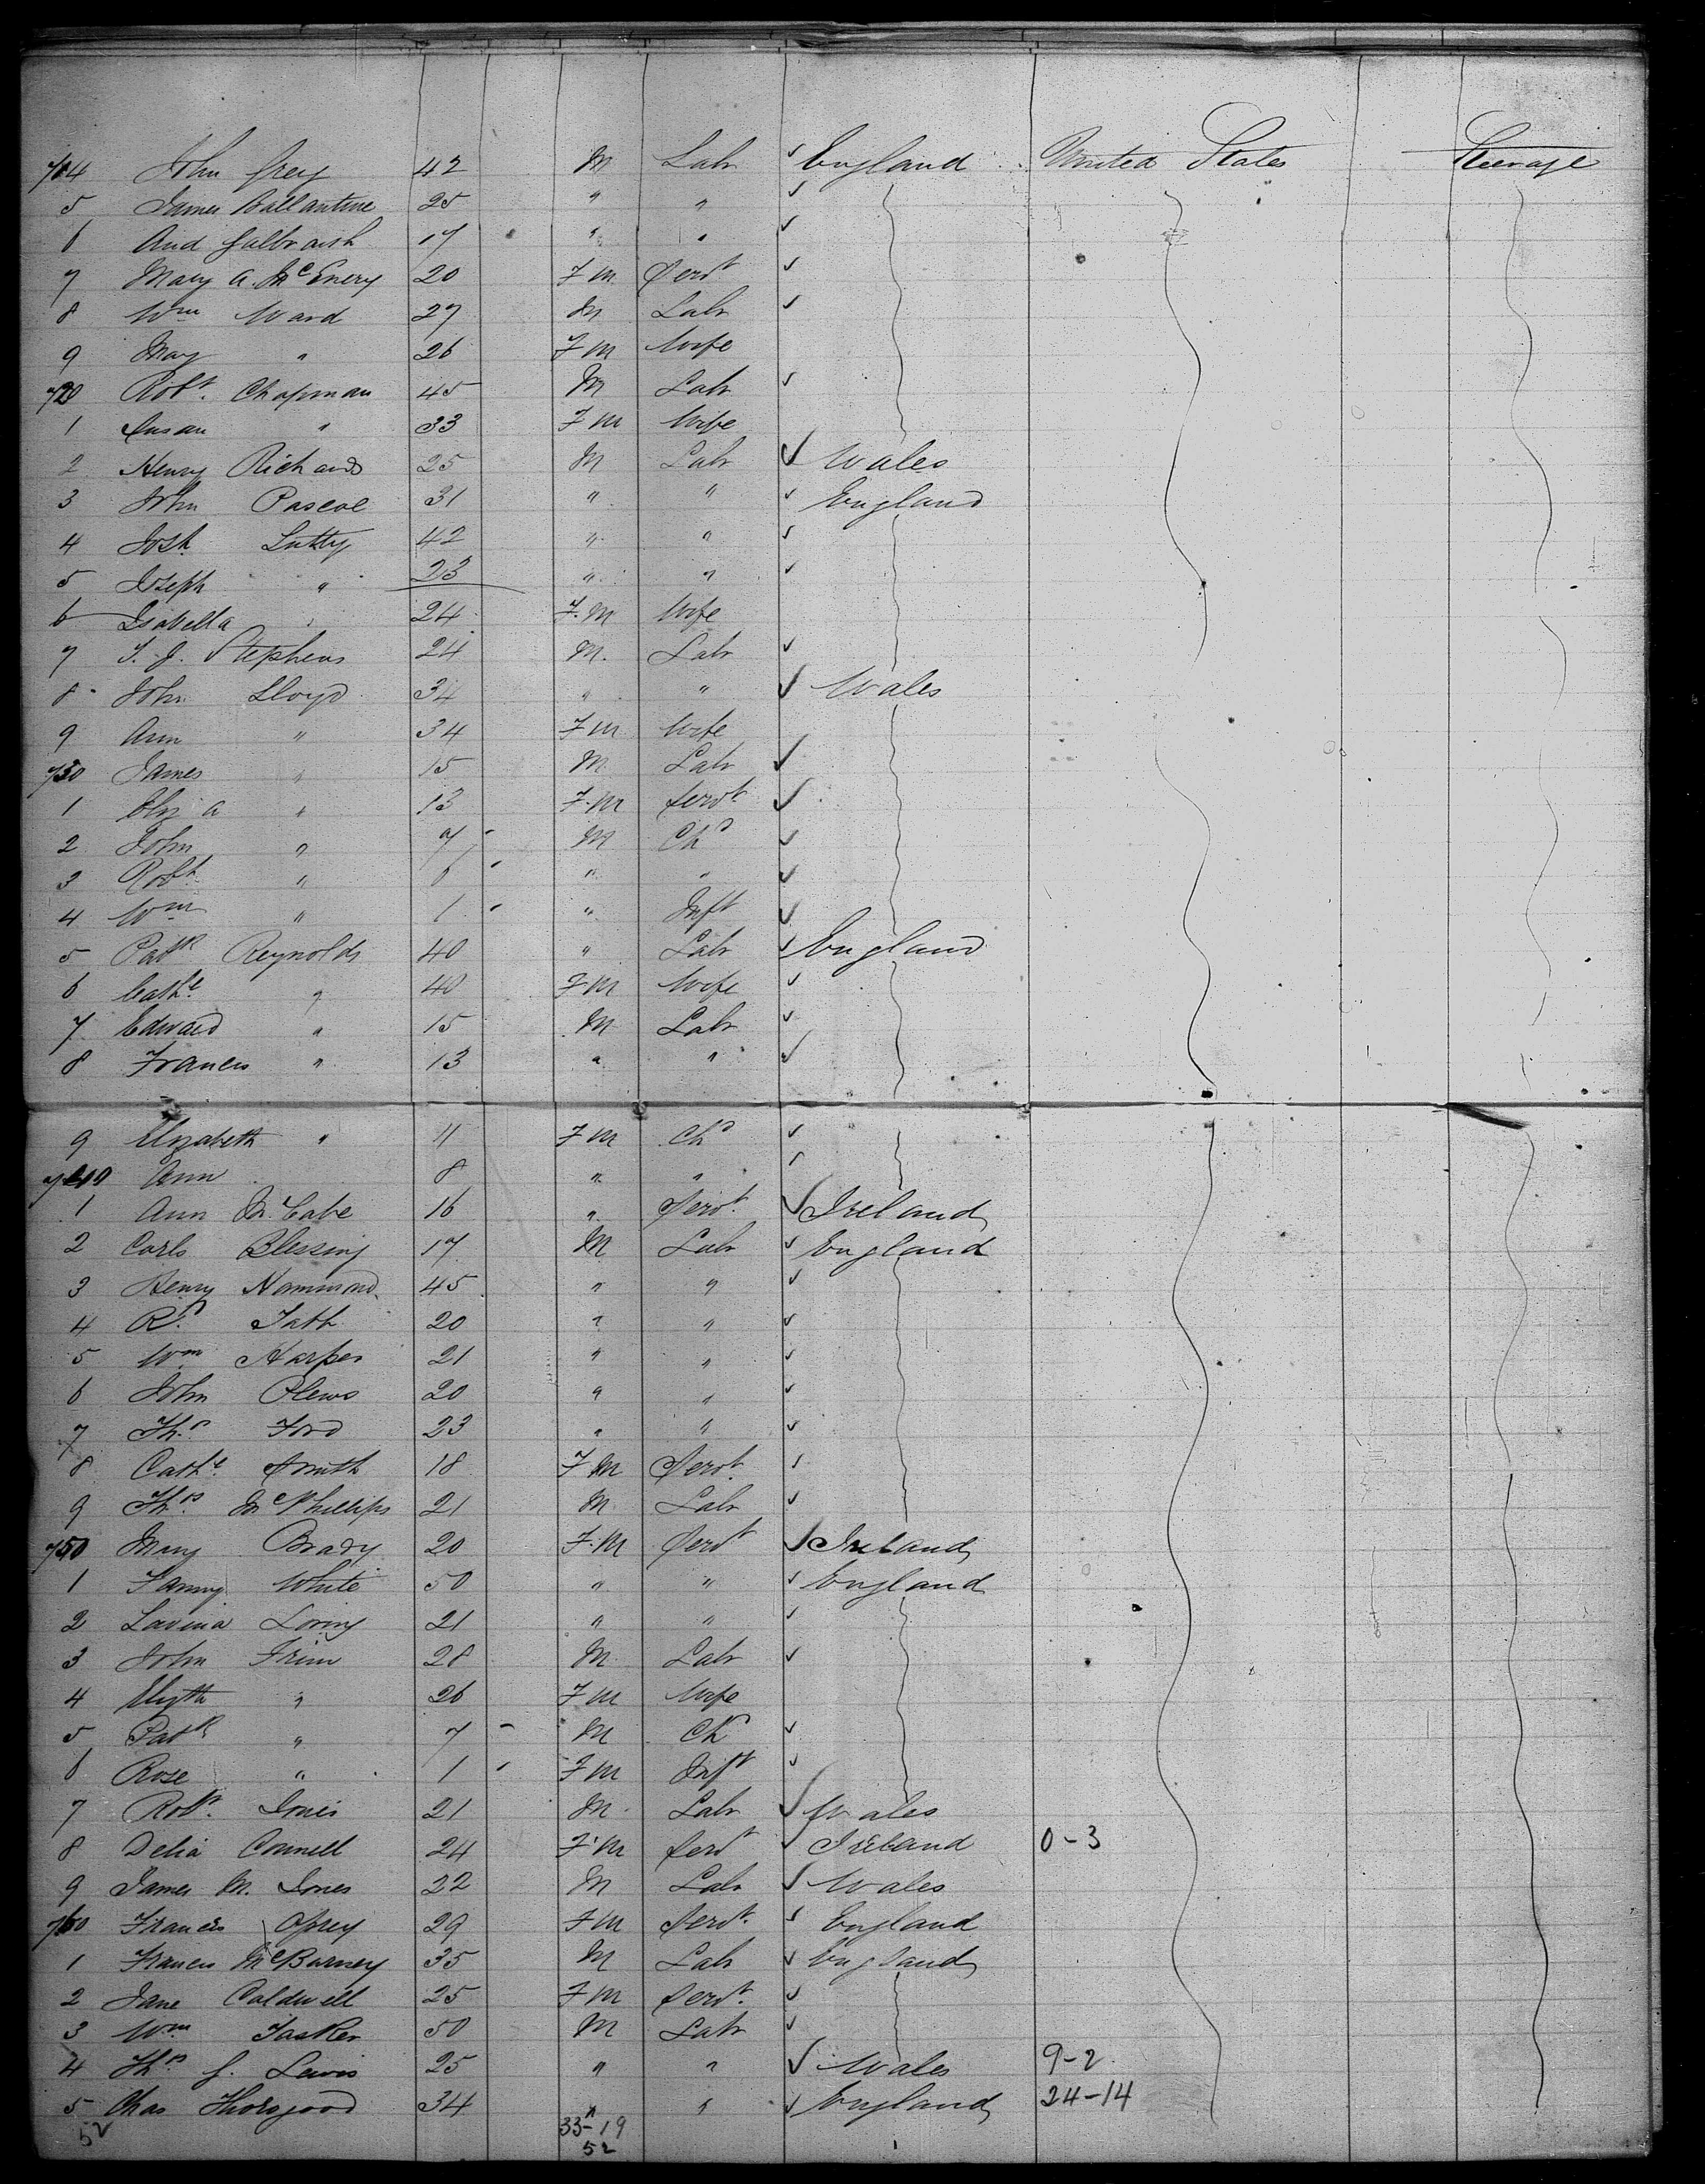 714 John Grey 42 M Labr ✓ England United States Steerage
5 James Ballantine 25 " " ✓
6 And Galbraith 17 " " ✓
7 Mary A. McEnery 20 Fm Servt ✓
8 Wm Ward 27 M Labr ✓
9 Mary " 26 Fm Wife
720 Robt. Chapman 45 M Labr ✓
1 Susan " 33 Fm Wife
2 Henry Richards 25 M Labr ✓ Wales
3 John Pascoe 31 " " ✓ England
4 Josh 42 " " ✓
5 Joseph " 23 " " ✓
6 Isabella " 24 F.m Wife
7 Stephens 24 M. Labr ✓
8 John Lloyd 34 " " ✓ Wales
9 Ann " 34 Fm Wife
730 James " 15 M Labr ✓
1 Eliz A " 13 F.m Servt ✓
2 John " 7 - M Chd ✓
3 Robt " 6 - " " ✓
4 Wm " 1 - " Inft ✓
5 Patk Reynolds 40 " Labr ✓ England
6 Cathe " 40 Fm Wife ✓
7 Edward " 15 M Labr ✓
8 Francis " 13 " " ✓
9 Elizabeth " 11 Fm Chd ✓
740 Ann 8 " " ✓
1 Ann McCabe 16 " Servt. ✓ Ireland
2 Carls Blessing 17 M Labr ✓ England
3 Henry Hammond 45 " " ✓
4 Rd. 20 " " ✓
5 Wm Harper 21 " " ✓
6 John Plews 20 " " ✓
7 Ths Ford 23 " " ✓
8 Cathe Smith 18 Fm Servt. ✓
9 Ths. McPhillips 21 M Labr ✓
750 Mary Brady 20 F.m Servt ✓ Ireland
1 Fanny White 50 " " ✓ England
2 Lavinia Loring 21 " " ✓
3 John 28 M Labr ✓
4 Elizth " 26 Fm Wife
5 Patk " 7 - M Chd ✓
6 Rose " 1 - Fm Inft ✓
7 Robt. Jones 21 M Labr ✓ Wales
8 Delia Connell 24 Fm Servt ✓ Ireland 0-3
9 James M. Jones 22 M Labr ✓ Wales
760 Frances 29 Fm Servt. ✓ England
1 Francis McBurney 35 M Labr ✓ England
2 Jane Caldwell 25 Fm Servt. ✓
3 Wm Tasker 50 M Labr ✓
4 Ths J. Lewis 25 " " ✓ Wales 9-2
5 Chas Thorogood 34 " " ✓ England 24-14
52 33-19
52